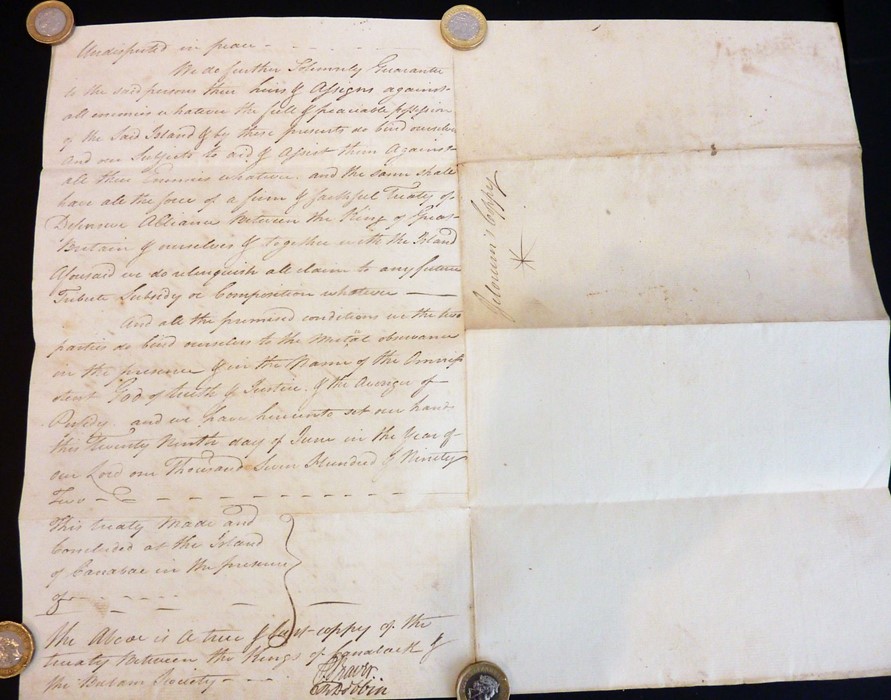 Undisputed in peace
We do further Solemnly Guarantee
to the said persons their heirs & Assigns against
all enemies whatever the full & peaceable possession
of the Said Island & by these presents do bind ourselves
and our Subjects to aid & Assist them Against
all their Enemies whatever and the same shall
have all the force of a firm & faithful Treaty of
Defensive Alliance Between the King of Great
Britain & ourselves & together with the Island
Aforesaid we do relinquish all claim to any future
Tribute Subsidy or Composition whatever
And all the premised conditions we the two
parties do bind ourselves to the Mutal observance
in the presence & in the Name of the Omnip
otent God of truth & Justice & the Avenger of
and we have hereunto set our hands
this twenty Ninth day of June in the Year of
our Lord one Thousand Seven Hundred & Ninety
Two
This treaty Made and
Concluded at the Island
of Canabac in the presence
of
the Above is a true & copy of the
treaty Between the Kings of Canaback &
the Bulam Society
Dobbin
Coppy